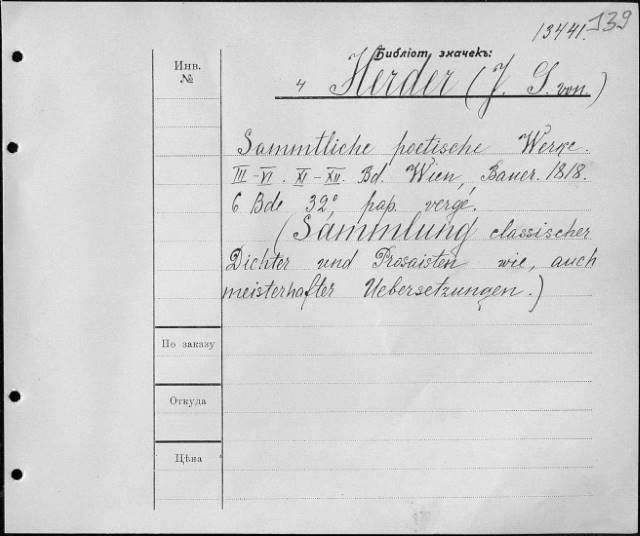 13441. 139
Библіот. значекъ:
Инв.
№
4 Herder (J. G. von)
Sammtliche poetische Werke.
III–VI. XI–XII. Bd. Wien, Bauer. 1818.
6 Bde 32°, pap. vergé.
(Sammlung classischer
Dichter und Prosaisten wie, auch
meisterhafter Uebersetzungen.)
По заказу
Откуда
Цѣна